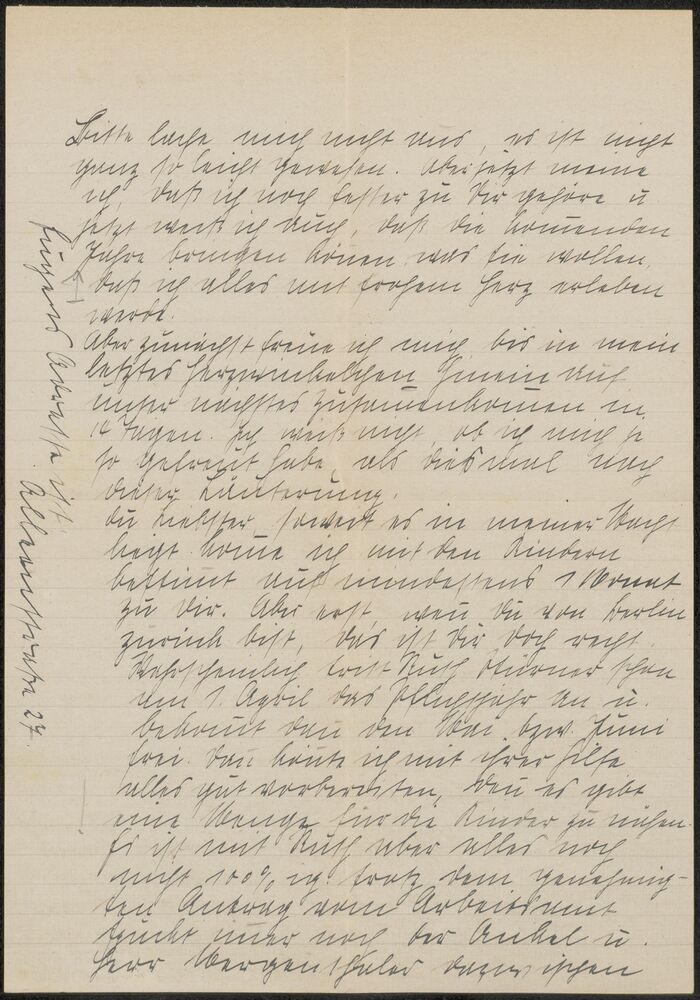 Bitte lache mich nicht aus, es ist nicht
ganz so leicht gewesen. Aber jetzt meine
ich, daß ich noch fester zu Dir gehöre u
jetzt weiß ich auch, daß die kommenden
Jahre bringen können was sie wollen,
daß ich alles mit frohem Herz erleben
werde.
Aber zunächst freue ich mich bis in mein
letztes hinein auf
unser nächstes Zusammenkommen in
14 Tagen. Ich weiß nicht, ob ich mich je
so gefreut habe, als diesmal nach
dieser Läuterung.
Du Liebster, soweit es in meiner Macht
liegt komme ich mit den Kindern
bestimmt auf mindestens 1 Monat
zu Dir. Aber erst, wenn Du von Berlin
zurück bist, das ist Dir doch recht.
Wahrscheinlich tritt Ruth schon
am 1. April das Pflichtjahr an u.
bekommt dann den Mai bzw. Juni
frei. Dann könnte ich mit ihrer Hilfe
alles gut vorbereiten, denn es gibt
eine Menge für die Kinder zu nähen.
Es ist mit Ruth aber alles noch
nicht 100% ig. trotz dem genehmig-
ten Antrag vom Arbeitsamt
spuckt immer noch der Onkel u.
Herr Mergenthaler dazwischen
Adresse ist:
27.